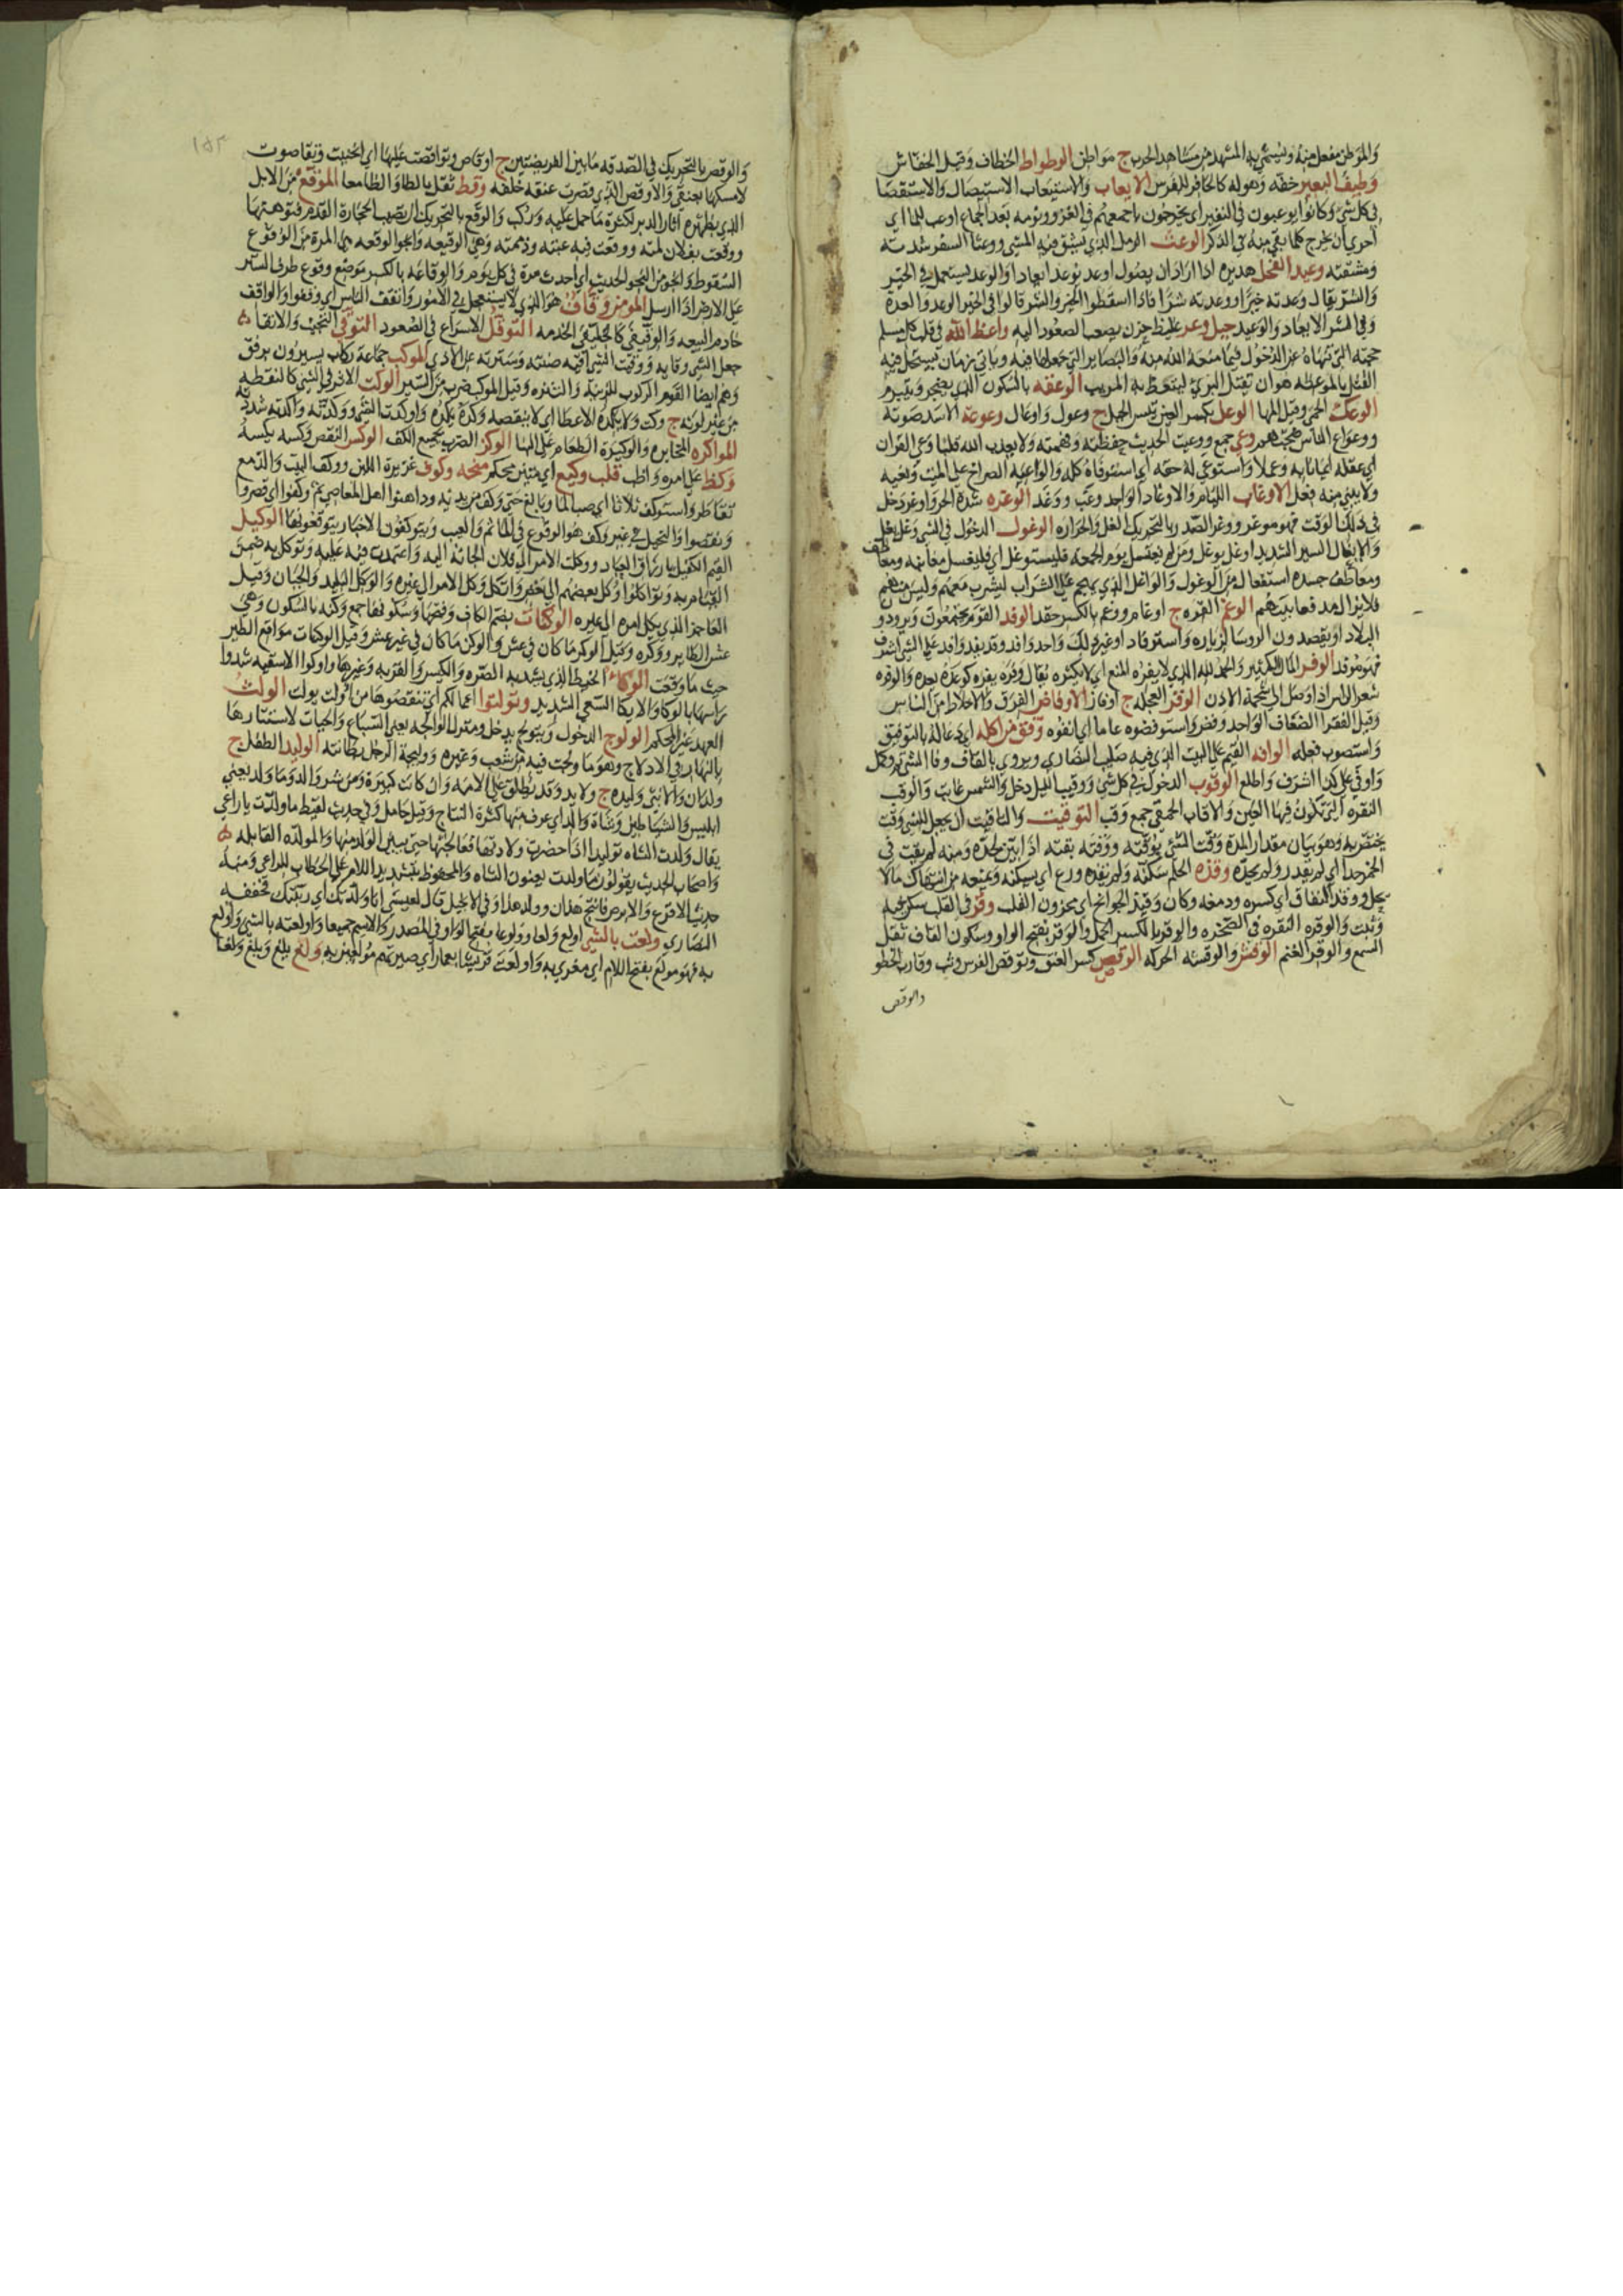 والموطن مفعل منه ويسمى به المشهد من مشاهد الحرب ج مواطن الوطواط الخطاف وقيل الخفاش
وظيف البعير خفه وهو له كالحافر للفرس الايعاب والاستيعاب الاستيصال والاستقصا
في كل شي وكانوا يوعبون في النفير اي يخرجون باجمعهم في الغزو ونومه بعد الجماع اوعب للما اي
احري ان يخرج كلما بقي منه في الذكر الوعث الرمل الذي يشق فيه المشي ووعثا السفر شدته
ومشقته وعيد الفحل هديره اذا اراد ان يصول اوعد يوعد ايعادا والوعد يستعمل في الخير
والشر يقال وعدته خيرا ووعدته شرا فاذا اسقطوا الخير والشر قالوا في الخير الوعد والعدة
وفي الشر الايعاد والوعيد جبل وعر غليظ حزن يصعب الصعود اليه واعظ الله في قلب كل مسلم
حججه التي تنهاه عن الدخول فيما منعه الله منه والبصاير التي جعلها فيه وياتي زمان يستحل فيه
القتل بالموعظه هو ان يقتل البري ليتعظ به المريب الوعقه بالسكون الذي يضجر ويتبرم
الوعك الحمى وقيل المها الوعل بكسر العين تيس الجبل ج وعول واوعال وعوعة الاسد صوته
ووعواع الناس ضجتهم وعي جمع ووعيت الحديث حفظته وفهمته ولا يعذب الله قلبا وعى القران
اي عقله ايمانا به وعملا واستوعى له حقه اي استوفاه كله والواعيه الصراخ على الميت ونعيه
ولا يبنى منه فعل الاوغاب الليام والاوغاد الواحد وغب ووغد الوغره شدة الحر واوغر دخل
في ذلك الوقت فهو موغر ووغر الصدر بالتحريك الغل والحراره الوغول الدخول في الشي وغل يغل
والايغال السير الشديد اوغل يوغل ومن لم يغتسل يوم الجمعه فليستوغل اي فليغسل مغابنه ومعاطف
ومعاطف جسده استفعال من الوغول والواغل الذي يهجم على الشراب ليشرب معهم وليس منهم
فلا يزال مدفعا بينهم الوغم التره ج اوغام ووغم بالكسر حقد الوفد القوم يجتمعون ويردون
البلاد او يقصدون الروسا لزياره واسترفاد او غير ذلك واحد وافد وفد يفد وافد على الشي اشرف
فهو موفد الوفر المال الكثير والحمد لله الذي لا يفره المنع اي لا يكثره يقال وفره يفره كوعده يعده والوفره
شعر الراس اذا وصل الى شحمة الاذن الوفز العجله ج اوفاز الاوفاض الفرق والاخلاط من الناس
وقيل الفقرا الضعاف الواحد وفض واستوفضوه عاما اي انفوه وفق من اكله اي دعا له بالتوفيق
واستصوب فعله الوافه القيم على البيت الذي فيه صليب النصارى ويروى بالقاف وفا الشي تم وكل
واوفى على كذا اشرف واطلع الوقوب الدخول في كل شي ووقب الليل دخل والشمس غابت والوقب
النقره التي تكون فيها العين والاوقاب الحمقى جمع وقب التوقيت والتاقيت ان يجعل للشي وقت
يختص به وهو بيان مقدار المدة وقت الشي يوقته ووقته يقته اذا بين حده ومنه لم يقت في
الخمر حدا اي لم يقدر ولم يحده وقذه الحلم سكنه
وثبت والوقره النقره في الصخره والوقر بالكسر الحمل والوقر بفتح الواو وسكون القاف ثقل
السمع والوقير الغنم الوقش والوقشه الحركه الوقص كسر العنق وتوقص الفرس وثب وقارب الخطو
والوقص
١٥٣
والوقص بالتحريك في الصدقه ما بين الفريضتين ج اوقاص وتواقصت عليها اي انحنيت وتقاصرت
لامسكها بعنقي والاوقص الذي قصرت عنقه خلقه وقط ثقل بالطا والظا معا الموقع من الابل
الذي بظهره اثار الدبر لكثرة ما حمل عليه وركب والوقع بالتحريك ان تصيب الحجارة القدم فتوهنها
ووقعت بفلان لمته ووقعت فيه عبته وذممته وهي الوقيعه
السقوط اي احدث مرة في كل يوم والوقاعه بالكسر موضع وقوع طرف الستر
على الارض اذا ارسل المومن وقاف هو الذي لا يستعجل في الامور وانقف الناس اي وقفوا والواقف
خادم البيعه والوقيفى كالخليفى الخدمه التوقل الاسراع في الصعود التوقي التجنب والاتقا
جعل الشي وقايه ووقيت الشي اقيه صنته وسترته عن الاذى الموكب جماعة ركاب يسيرون برفق
وهم ايضا القوم الركوب للزينه والتنزه وقيل الموكب ضرب من السير الوكت الاثر في الشي كالنقطه
من غير لونه ج وكت ولا يكده الاعطا اي لا ينقصه
المواكره المخابره والوكيرة الطعام على البنا الوكز الضرب بجميع الكف الوكس النقص وكسه يكسه
وكظ على امره واظب قلب وكيع اي متين محكم منحه وكوف غزيرة اللبن ووكف البيت والدمع
تقاطر واستوكف ثلاثا اي صب الما وبالغ حتى وكف من يديه وداهنوا اهل المعاصي ثم وكفوا اي قصروا
ونقصوا والبخيل في غير وكف هو الوقوع في الماثم والعيب ويتوكفون الاخبار يتوقعونها الوكيل
القيم الكفيل بارزاق العباد ووكلت الامر الى فلان الجاته اليه واعتمدت فيه عليه وتوكل به ضمن
القيام به وتواكلوا وكل بعضهم الى بعض واتكل وكل الامر الى غيره والوكل البليد والجبان وقيل
العاجز الذي يكل امره الى غيره الوكنات بضم الكاف وفتحها وسكونها جمع وكنه بالسكون وهي
عش الطاير ووكره وقيل الوكر ما كان في عش والوكن ما كان في غير عش وقيل الوكنات مواقع الطير
حيث ما وقعت الوكاء الخيط الذي يشد به الصره والكيس والقربه وغيرها واوكوا الاسقيه شدوا
راسها بالوكا والايكا السعي الشديد وتولتوا اعمالكم اي تنقصوها من اولت يولت الولث
العهد غير المحكم الولوج الدخول ويتولج يدخل ومنزل الوالجه يعني السباع والحيات لاستتارها
بالنهار في الاولاج وهو ما ولجت فيه من شعب وغيره ووليجة الرجل بطانته الوليد الطفل ج
ولدان والانثى وليده ج ولايد وقد تطلق على الامه وان كانت كبيرة ومن شر والد وما ولد يعني
ابليس والشياطين وشاة والد اي عرف منها كثرة النتاج وقيل حامل وفي حديث لقيط ما ولدت يا راعي
يقال ولدت الشاه توليدا اذا حضرت ولادتها فعالجتها حتى يبين الولد منها والمولده القابله
واصحاب الحديث يقولون ما ولدت يعنون الشاه والمحفوظ بتشديد اللام على الخطاب للراعي ومنه
حديث الاقرع والابرص فانتج هذان وولد هذا وفي الانجيل قال لعيسى انا ولدتك اي ربيتك فخففه
النصارى ولعت بالشي اولع ولعا وولوعا بفتح الواو في المصدر والاسم جميعا واولعته بالشي واولع
به فهو مولع بفتح اللام اي مغرى به واولعت قريشا بعمار اي صيرتهم مولعين به ولغ يلغ ويلغ ولغا